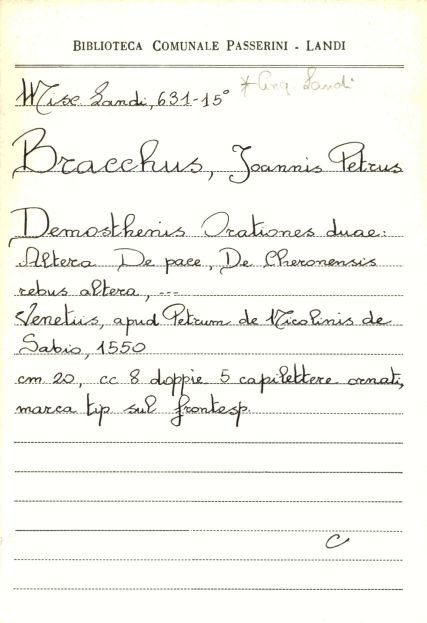 BIBLIOTECA COMUNALE PASSERINI - LANDI
Misc. Landi, 631-15° * Cinq. Landi
Bracchus, Joannis Petrus
Demosthenis Orationes duae:
Altera De pace, De Cheronensis
rebus altera, ---
Venetiis, apud Petrum de Nicolinis de
Sabio, 1550
cm 20, cc 8 doppie 5 capilettere ornati,
marca tip sul frontesp.
C